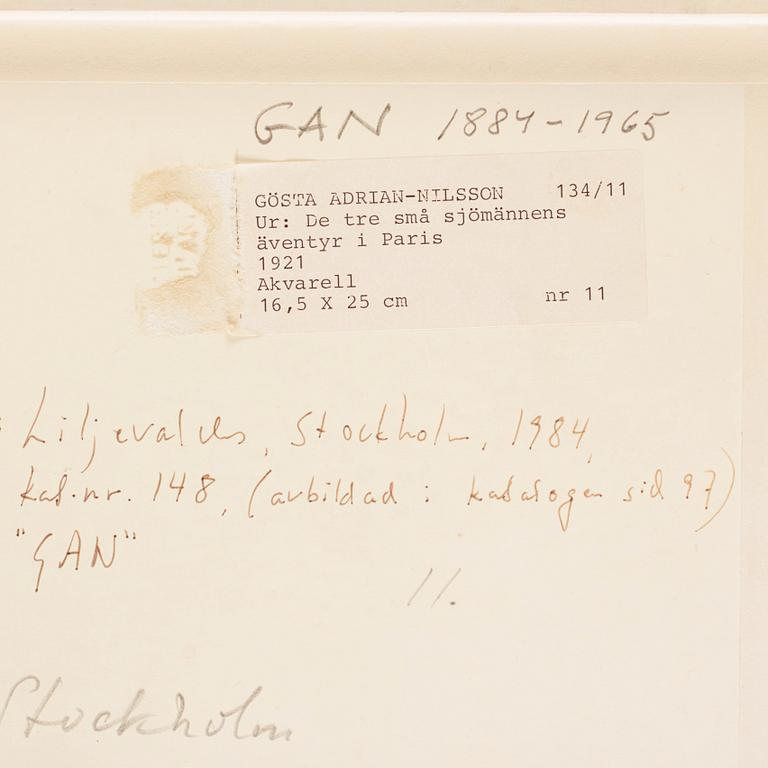 GAN 1884-1965
GÖSTA ADRIAN-NILSSON 134/11
Ur: De tre små sjömännens
äventyr i Paris
1921
Akvarell
16,5 X 25 cm nr 11
Liljevalchs, Stockholm, 1984,
kat.nr. 148, (avbildad i katalogen sid 97)
"GAN"
11.
Stockholm